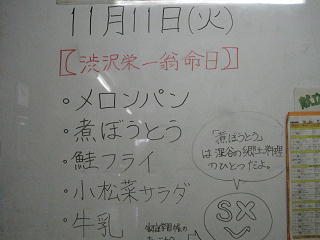 11月11日(火)
【渋沢栄一翁命日】
・メロンパン
・煮ぼうとう
・鮭フライ
・小松菜サラダ
・牛乳
「煮ぼうとう」
は深谷の郷土料理
のひとつだよ。
SX
献立